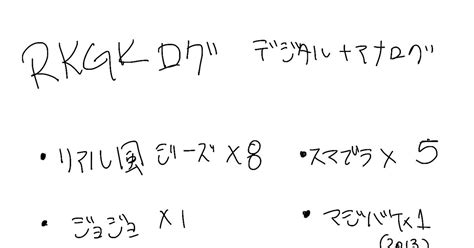 RKGKログ デジタル+アナログ
・リアル風 ジーズ×8 ・スマブラ× 5
・ジョジョ ×1 ・マジバケ×1
(2013)